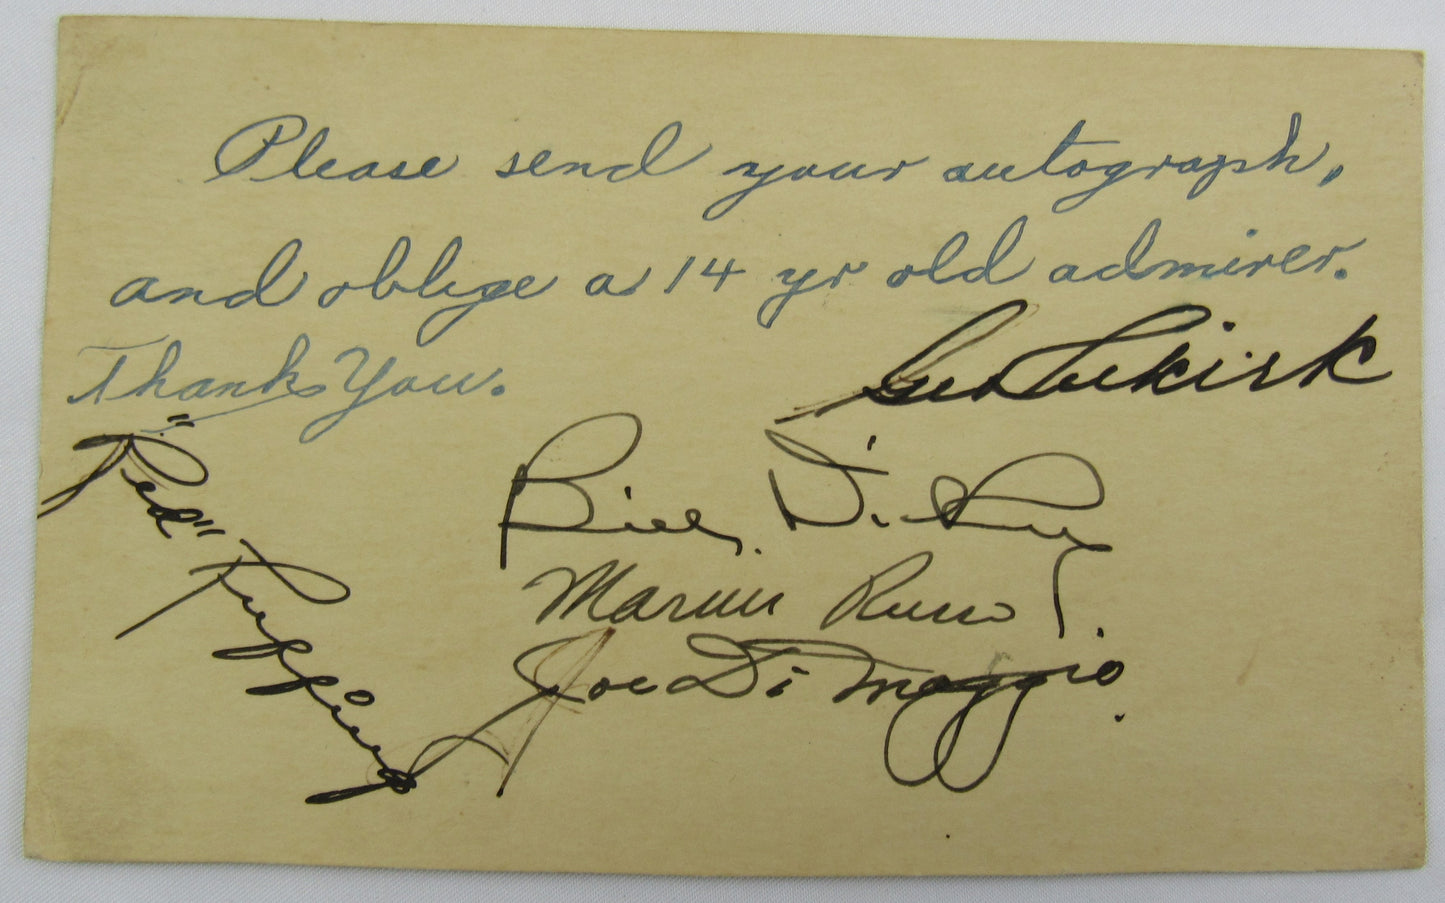 Please send your autograph,
and oblige a 14 yr old admirer.
Thank You.
Geo Selkirk
"Red" Ruffing
Bill Dickey
Marius Russo
Joe Di Maggio